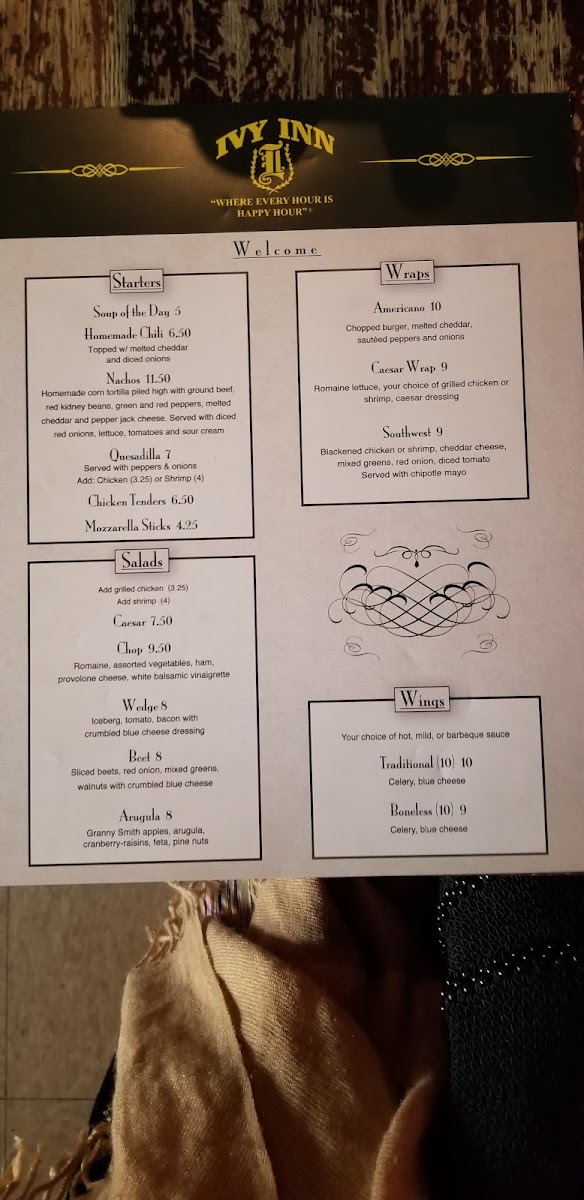 IVY INN
I
"WHERE EVERY HOUR IS
HAPPY HOUR"®
Welcome
Starters
Soup of the Day 5
Homemade Chili 6.50
Topped w/ melted cheddar
and diced onions
Nachos 11.50
Homemade corn tortilla piled high with ground beef,
red kidney beans, green and red peppers, melted
cheddar and pepper jack cheese. Served with diced
red onions, lettuce, tomatoes and sour cream
Quesadilla 7
Served with peppers & onions
Add: Chicken (3.25) or Shrimp (4)
Chicken Tenders 6.50
Mozzarella Sticks 4.25
Salads
Add grilled chicken (3.25)
Add shrimp (4)
Caesar 7.50
Chop 9.50
Romaine, assorted vegetables, ham,
provolone cheese, white balsamic vinaigrette
Wedge 8
Iceberg, tomato, bacon with
crumbled blue cheese dressing
Beet 8
Sliced beets, red onion, mixed greens,
walnuts with crumbled blue cheese
Arugula 8
Granny Smith apples, arugula,
cranberry-raisins, feta, pine nuts
Wraps
Americano 10
Chopped burger, melted cheddar,
sautéed peppers and onions
Caesar Wrap 9
Romaine lettuce, your choice of grilled chicken or
shrimp, caesar dressing
Southwest 9
Blackened chicken or shrimp, cheddar cheese,
mixed greens, red onion, diced tomato
Served with chipotle mayo
Wings
Your choice of hot, mild, or barbeque sauce
Traditional (10) 10
Celery, blue cheese
Boneless (10) 9
Celery, blue cheese